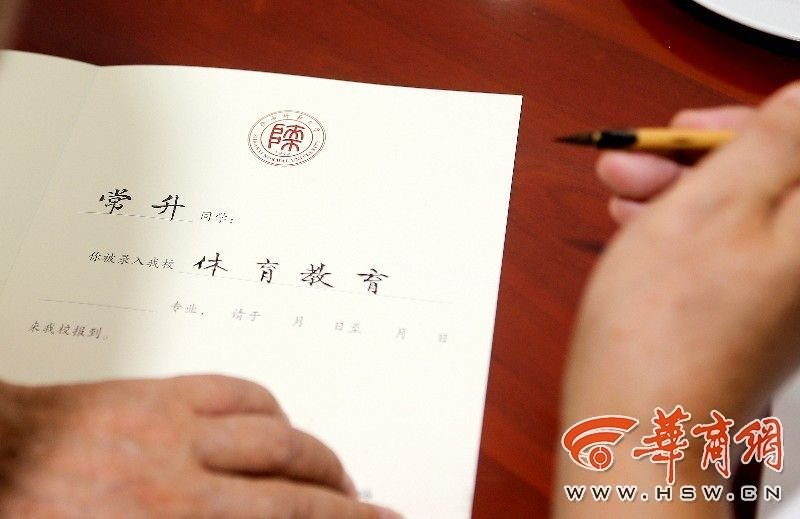 陕
常升 同学：
你被录入我校 体育教育
专业， 请于 月 日至 月 日
来我校报到。
華商網
WWW.HSW.CN